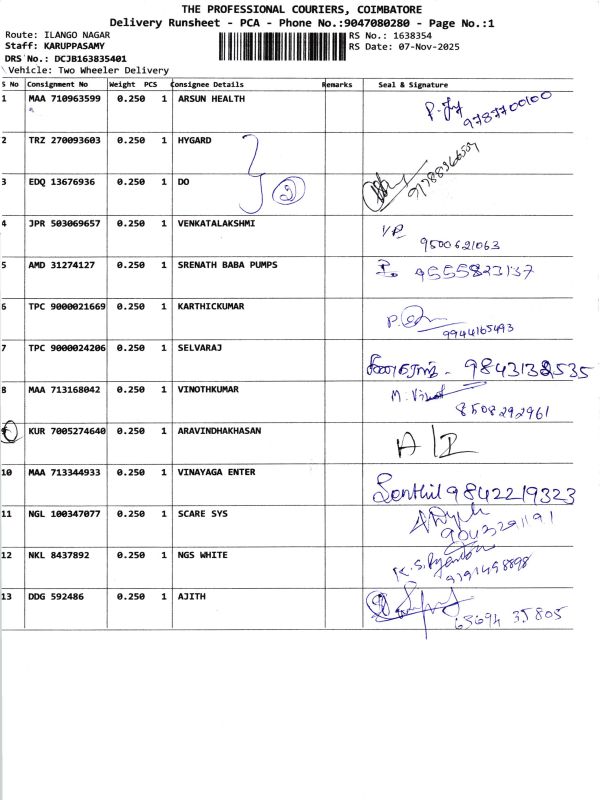 THE PROFESSIONAL COURIERS, COIMBATORE
Delivery Runsheet - PCA - Phone No.:9047080280 - Page No.:1
Route: ILANGO NAGAR RS No.: 1638354
Staff: KARUPPASAMY RS Date: 07-Nov-2025
DRS No.: DCJB163835401
Vehicle: Two Wheeler Delivery
S No Consignment No Weight PCS Consignee Details Remarks Seal & Signature
1 MAA 710963599 0.250 1 ARSUN HEALTH 9787700100
2 TRZ 270093603 0.250 1 HYGARD
3 EDQ 13676936 0.250 1 DO 2
4 JPR 503069657 0.250 1 VENKATALAKSHMI VP 9500621063
5 AMD 31274127 0.250 1 SRENATH BABA PUMPS 9555823137
6 TPC 9000021669 0.250 1 KARTHICKUMAR 9944165493
7 TPC 9000024206 0.250 1 SELVARAJ 9843132535
8 MAA 713168042 0.250 1 VINOTHKUMAR M. Vinot 8508292961
KUR 7005274640 0.250 1 ARAVINDHAKHASAN
10 MAA 713344933 0.250 1 VINAYAGA ENTER Senthil 9842219323
11 NGL 100347077 0.250 1 SCARE SYS 9043291191
12 NKL 8437892 0.250 1 NGS WHITE
13 DDG 592486 0.250 1 AJITH 63694 35805